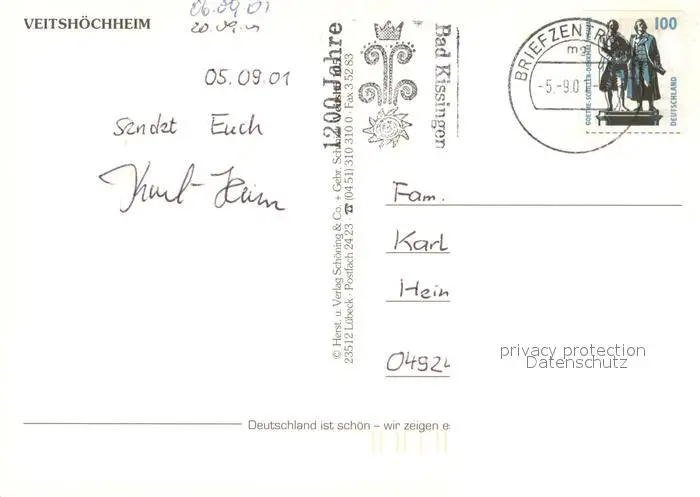 VEITSHÖCHHEIM
06.09.01
20.09.01
05.09.01
sendet Euch
Karl-Heinz
1200 Jahre
Bad Kissingen
© Herst. u. Verlag Schöning & Co. + Gebr. Schmidt
23512 Lübeck · Postfach 24 23 · ☎ (04 51) 310 310 0 · Fax 3 52 83
BRIEFZENTR
-5.-9.0
GOETHE-SCHILLER-DENKMAL
100
DEUTSCHLAND
Fam.
Karl
Hein
0492
privacy protection
Datenschutz
Deutschland ist schön – wir zeigen e